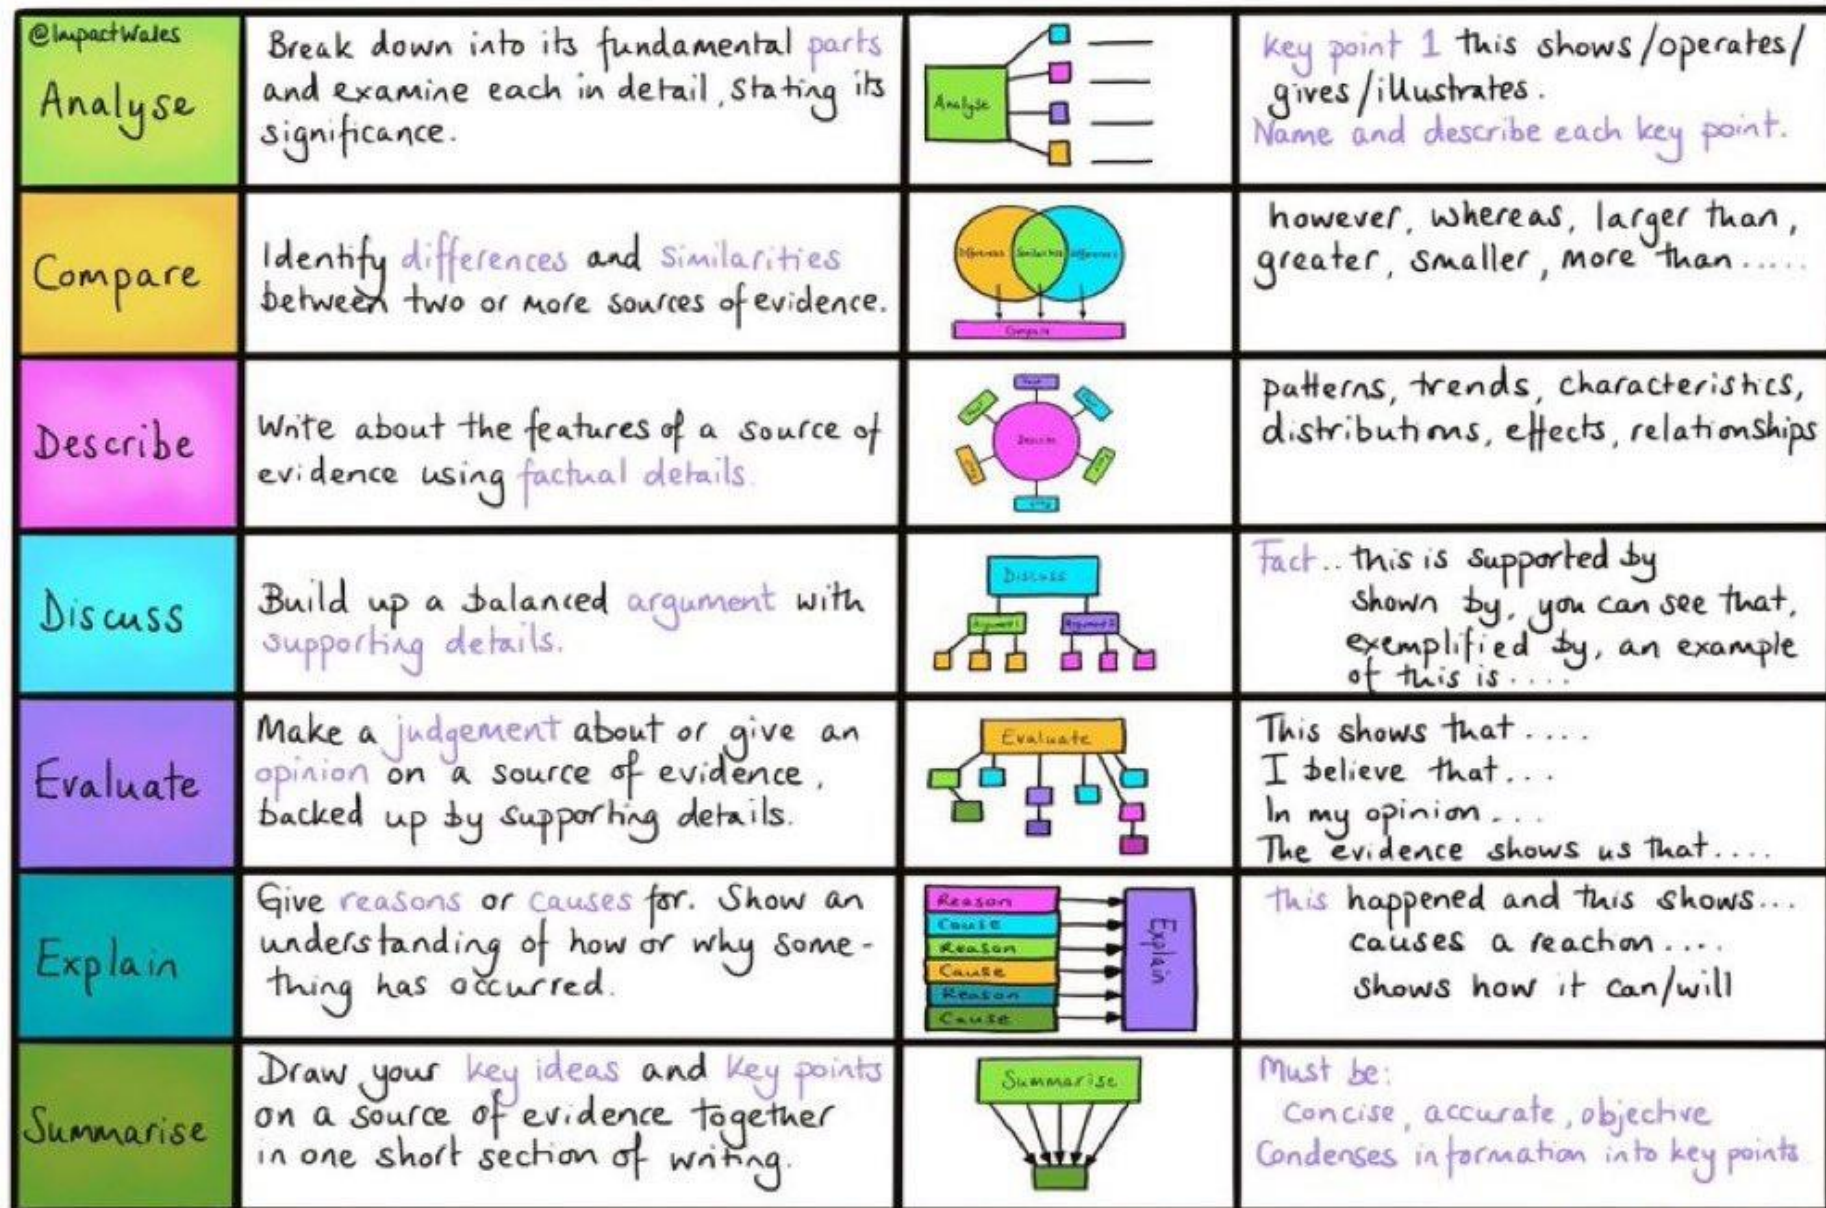 @ImpactWales
Analyse
Break down into its fundamental parts
and examine each in detail, stating its
significance.
Analyse
key point 1 this shows/operates/
gives/illustrates.
Name and describe each key point.
Compare
Identify differences and similarities
between two or more sources of evidence.
Differences Similarities Differences
Compare
however, whereas, larger than,
greater, smaller, more than.....
Describe
Write about the features of a source of
evidence using factual details.
Describe
patterns, trends, characteristics,
distributions, effects, relationships
Discuss
Build up a balanced argument with
supporting details.
Discuss
Argument 1 Argument 2
Fact.. this is supported by
shown by, you can see that,
exemplified by, an example
of this is....
Evaluate
Make a judgement about or give an
opinion on a source of evidence,
backed up by supporting details.
Evaluate
This shows that....
I believe that...
In my opinion...
The evidence shows us that....
Explain
Give reasons or causes for. Show an
understanding of how or why some-
thing has occurred.
Reason
Cause
Reason
Cause
Reason
Cause
Explain
this happened and this shows...
causes a reaction....
shows how it can/will
Summarise
Draw your key ideas and key points
on a source of evidence together
in one short section of writing.
Summarise
Must be:
concise, accurate, objective
Condenses information into key points